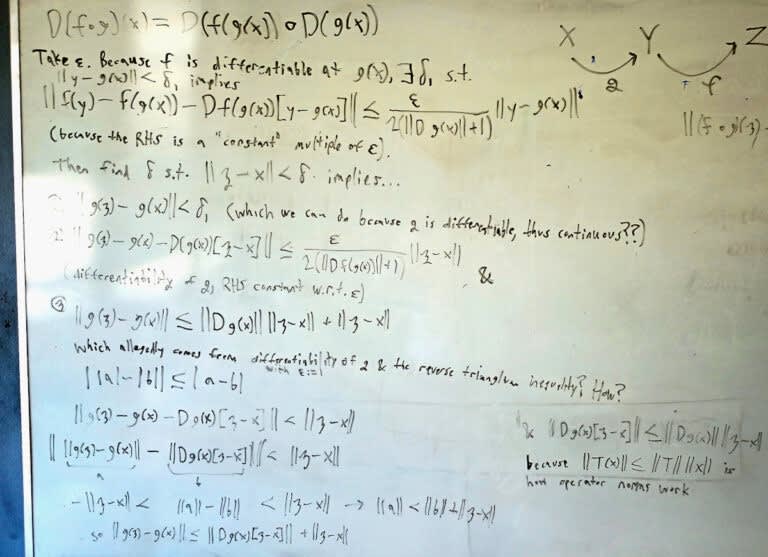 D(f∘g)(x) = D(f(g(x)) ∘ D(g(x))
X Y Z
g f
Take ε. Because f is differentiable at g(x), ∃ δ, s.t.
||y - g(x)|| < δ, implies
||f(y) - f(g(x)) - Df(g(x))[y - g(x)]|| ≤ ε / 2(||Dg(x)||+1) ||y - g(x)||
||(f∘g)(z) -
(because the RHS is a "constant" multiple of ε).
Then find δ s.t. ||z - x|| < δ implies...
||g(z) - g(x)|| < δ, (which we can do because g is differentiable, thus continuous??)
2. ||g(z) - g(x) - D(g(x))[z - x]|| ≤ ε / 2(||Df(g(x))||+1) ||z - x|| &
(differentiability of g, RHS constant w.r.t. ε)
③ ||g(z) - g(x)|| ≤ ||Dg(x)|| ||z - x|| + ||z - x||
which allegedly comes from differentiability of g & the reverse triangle inequality? How?
with ε=1
||a| - |b|| ≤ |a - b|
||g(z) - g(x) - Dg(x)[z - x]|| < ||z - x||
|| ||g(z) - g(x)|| - ||Dg(x)[z - x]|| || < ||z - x||
a b
& ||Dg(x)[z - x]|| ≤ ||Dg(x)|| ||z - x||
because ||T(x)|| ≤ ||T|| ||x|| is
how operator norms work
-||z - x|| < ||a|| - ||b|| < ||z - x|| → ||a|| < ||b|| + ||z - x||
so ||g(z) - g(x)|| ≤ ||Dg(x)[z - x]|| + ||z - x||